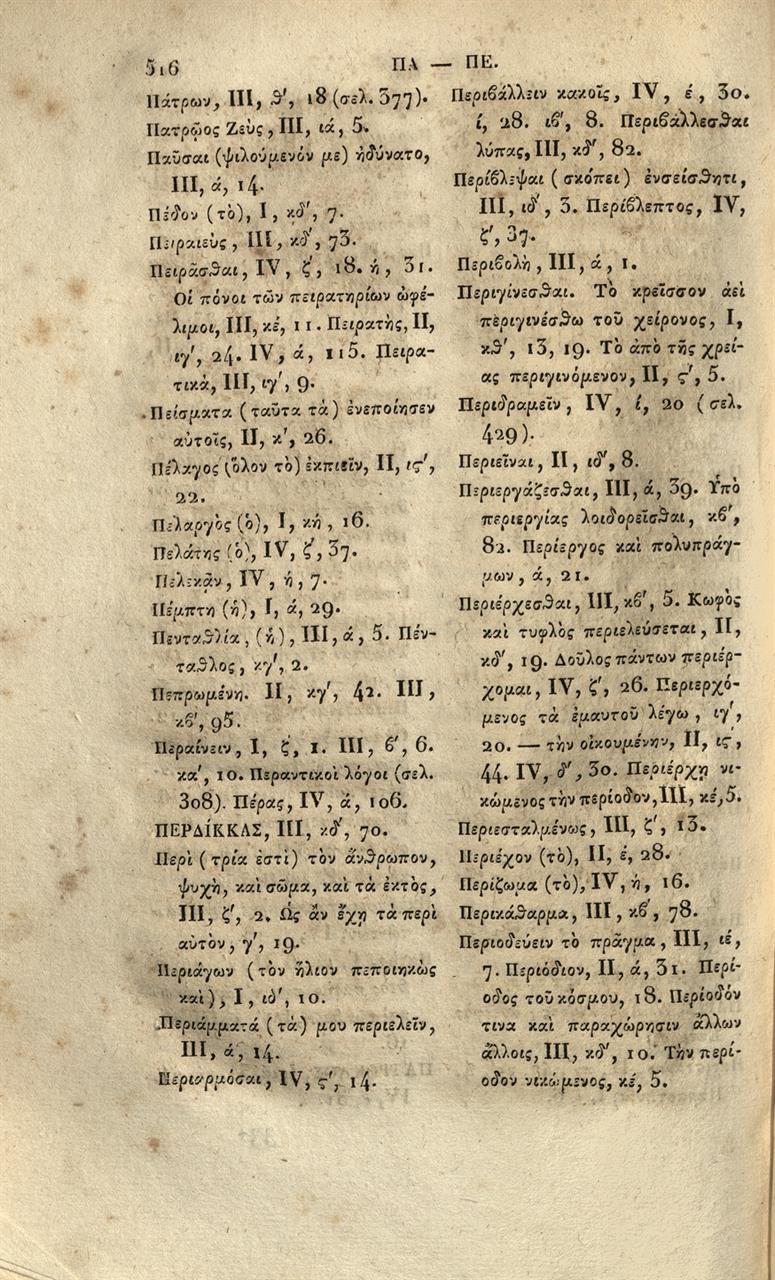 516
ΠΑ — ΠΕ.
Πάτρων, III, θ', 18 (σελ. 377).
Πατρῷος Ζεὺς, III, ιά, 5.
Παῦσαι (ψιλούμενόν με) ἠδύνατο,
III, ά, 14.
Πέδον (τὸ), I, κδ', 7.
Πειραιεὺς, III, κδ', 73.
Πειρᾶσθαι, IV, ζ', 18. ή, 31.
Οἱ πόνοι τῶν πειρατηρίων ὠφέ-
λιμοι, III, κέ, 11. Πειρατὴς, II,
ιγ', 24. IV, ά, 115. Πειρα-
τικὰ, III, ιγ', 9.
Πείσματα (ταῦτα τὰ) ἐνεποίησεν
αὐτοῖς, II, κ', 26.
Πέλαγος (ὅλον τὸ) ἐκπιεῖν, II, ις',
22.
Πελαργὸς (ὁ), I, κή, 16.
Πελάτης (ὁ), IV, ζ', 37.
Πελεκᾷν, IV, ή, 7.
Πέμπτη (ἡ), I, ά, 29.
Πενταθλία, (ἡ), III, ά, 5. Πέν-
ταθλος, κγ', 2.
Πεπρωμένη. II, κγ', 42. III,
κϐ', 95.
Περαίνειν, I, ζ', 1. III, ϐ', 6.
κα', 10. Περαντικοὶ λόγοι (σελ.
308). Πέρας, IV, ά, 106.
ΠΕΡΔΙΚΚΑΣ, III, κδ', 70.
Περὶ (τρία ἐστὶ) τὸν ἄνθρωπον,
ψυχὴ, καὶ σῶμα, καὶ τὰ ἐκτὸς,
III, ζ', 2. Ὡς ἂν ἔχῃ τὰ περὶ
αὐτὸν, γ', 19.
Περιάγων (τὸν ἥλιον πεποιηκὼς
καὶ), I, ιδ', 10.
Περιάμματά (τὰ) μου περιελεῖν,
III, ά, 14.
Περιαρμόσαι, IV, ς', 14.
Περιϐάλλειν κακοῖς, IV, έ, 30.
ί, 28. ιϐ', 8. Περιϐάλλεσθαι
λύπας, III, κδ', 82.
Περίϐλεψαι (σκόπει) ἐνσείσθητι,
III, ιδ', 3. Περίϐλεπτος, IV,
ζ', 37.
Περιϐολὴ, III, ά, 1.
Περιγίνεσθαι. Τὸ κρεῖσσον ἀεὶ
περιγινέσθω τοῦ χείρονος, I,
κθ', 13, 19. Τὸ ἀπὸ τῆς χρεί-
ας περιγινόμενον, II, ς', 5.
Περιδραμεῖν, IV, ί, 20 (σελ.
429).
Περιεῖναι, II, ιδ', 8.
Περιεργάζεσθαι, III, ά, 39. Ὑπὸ
περιεργίας λοιδορεῖσθαι, κϐ',
82. Περίεργος καὶ πολυπράγ-
μων, ά, 21.
Περιέρχεσθαι, III, κϐ', 5. Κωφὸς
καὶ τυφλὸς περιελεύσεται, II,
κδ', 19. Δοῦλος πάντων περιέρ-
χομαι, IV, ζ', 26. Περιερχό-
μενος τὰ ἐμαυτοῦ λέγω, ιγ',
20. — τὴν οἰκουμένην, II, ις',
44. IV, δ', 30. Περιέρχῃ νι-
κώμενος τὴν περίοδον, III, κέ, 5.
Περιεσταλμένως, III, ζ', 13.
Περιέχον (τὸ), II, έ, 28.
Περίζωμα (τὸ), IV, ή, 16.
Περικάθαρμα, III, κϐ', 78.
Περιοδεύειν τὸ πρᾶγμα, III, ιέ,
7. Περιόδιον, II, ά, 31. Περί-
οδος τοῦ κόσμου, 18. Περίοδόν
τινα καὶ παραχώρησιν ἄλλων
ἄλλοις, III, κδ', 10. Τὴν περί-
οδον νικώμενος, κέ, 5.